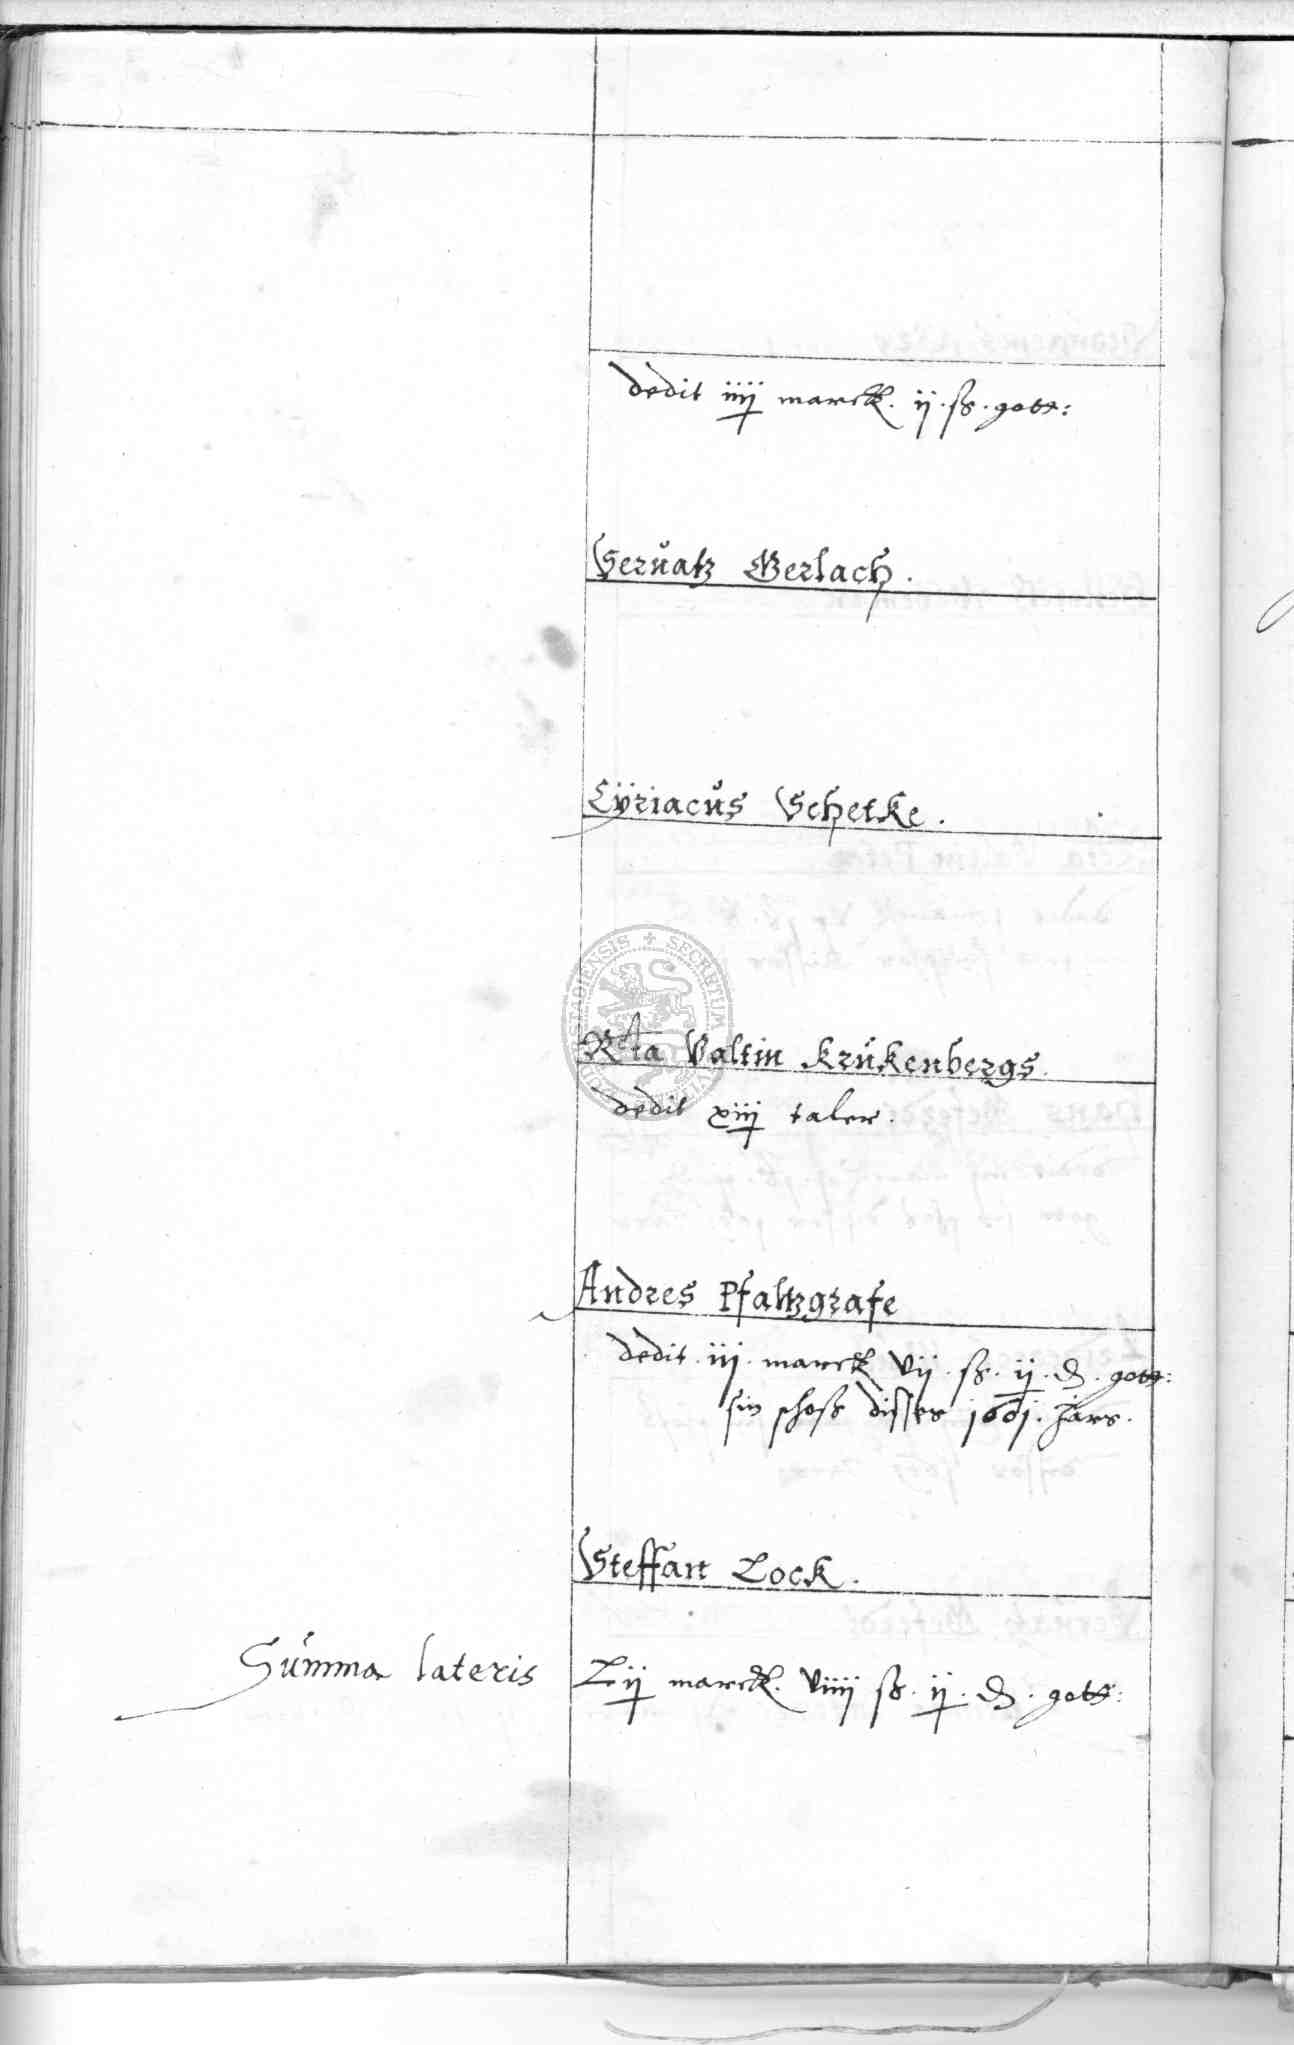 dedit iiij marck. ij. ß. gott:
Servatz Gerlach.
Cÿriacus Schetke.
SECRETUM
Rcta Valtin Krukenbergs
dedit xiij taler.
Andres Pfaltzgrafe
dedit. iij. marck vij. ß. ij. d. gott:
sin schoß disses 1601. Jars.
Steffan Lock.
Summa lateris Lij marck. viiij ß. ij. d. gott: